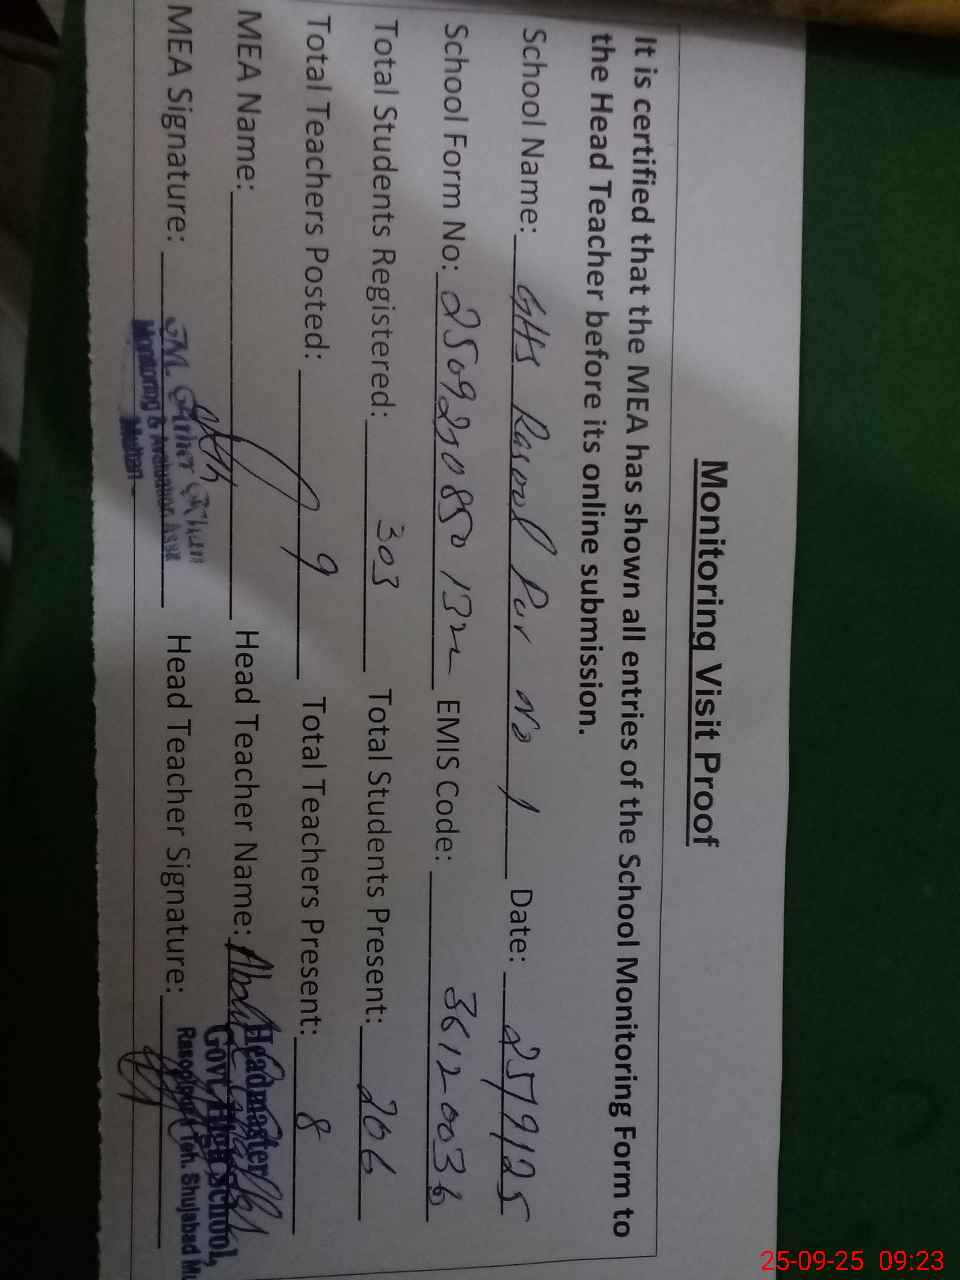 Monitoring Visit Proof
It is certified that the MEA has shown all entries of the School Monitoring Form to
the Head Teacher before its online submission.
School Name: GHS Rasool Pur No 1 Date: 25/9/25
School Form No: EMIS Code: 36120036
Total Students Registered: 303 Total Students Present: 206
Total Teachers Posted: 9 Total Teachers Present: 8
MEA Name: Head Teacher Name: Abdul
Headmaster
Govt. High School,
Rasoolpur Teh. Shujabad
MEA Signature: Head Teacher Signature:
Monitoring &
Multan
25-09-25 09:23